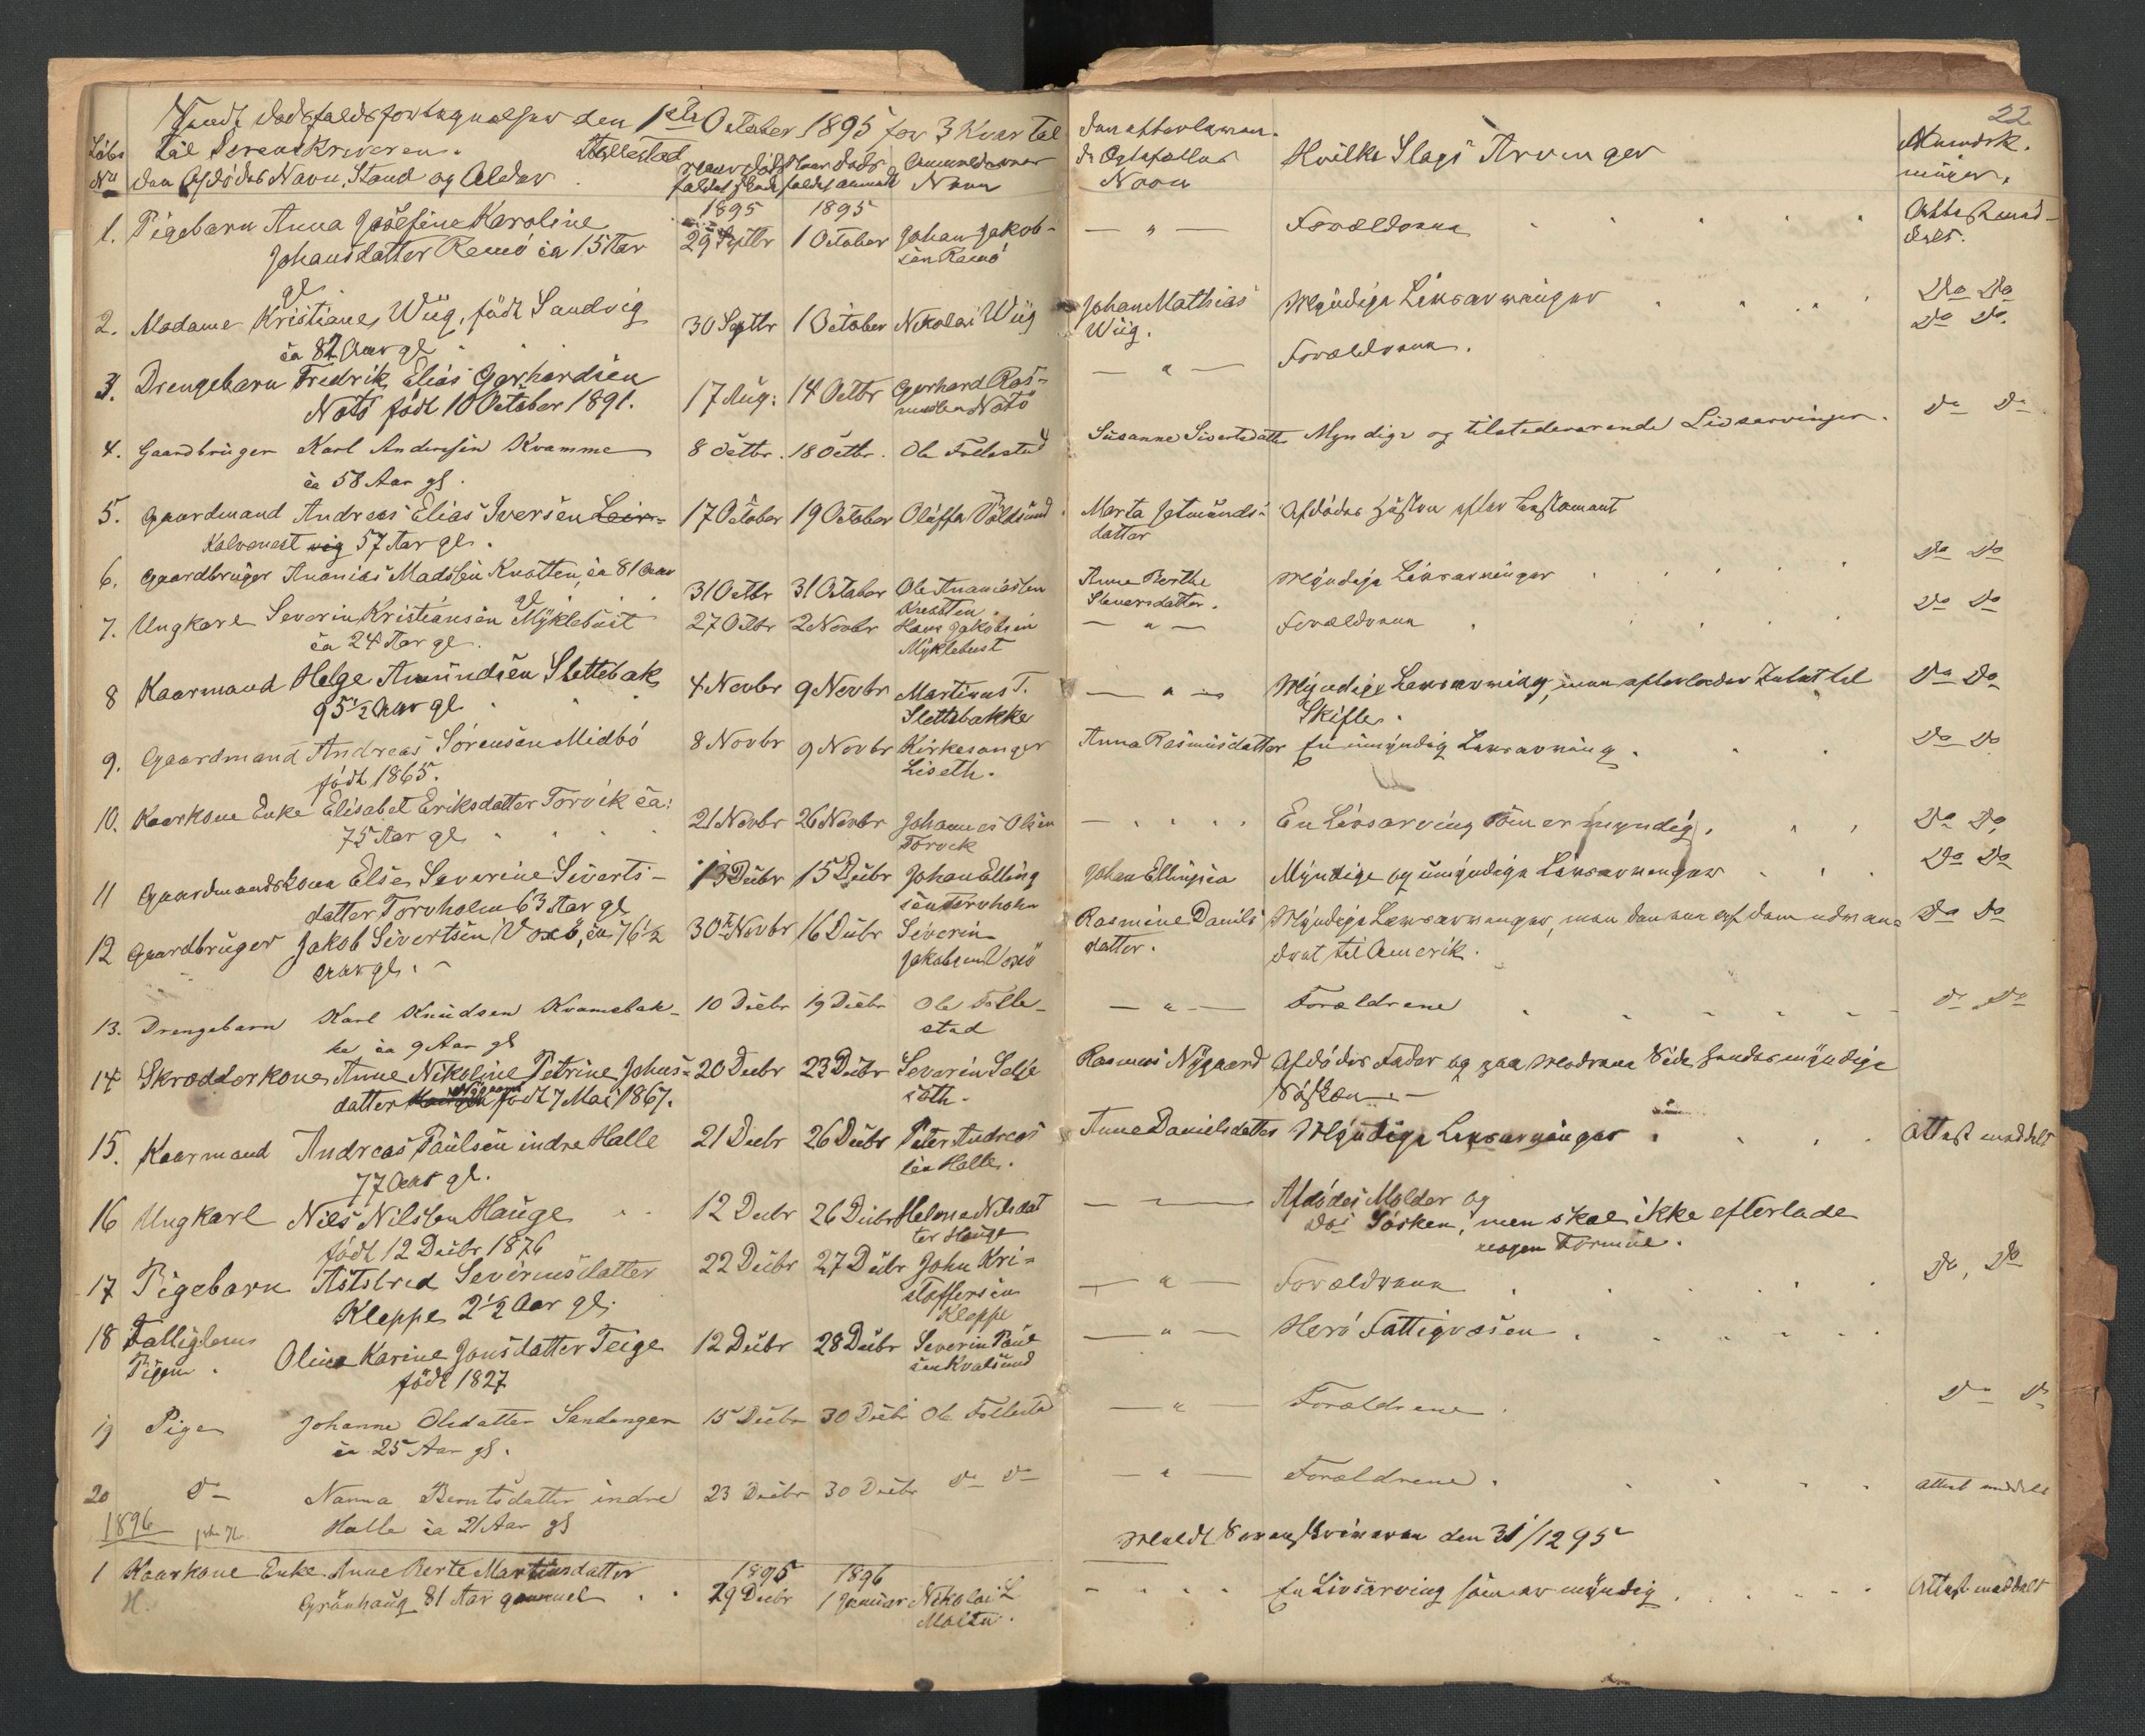 Sendt Dødsfaldsfortegnelser den 1ste October 1895 for 3 Kvartal
til Sorenskriveren.
Løbe No
Den Afdødes Navn, Stand og Alder
Naar Dødsfaldet skede
Naar Dødsfaldet anmeldt
Anmelderens Navn
Den efterlevende Ægtefælles Navn
Hvilke Slags Arvinger
Anmærkninger.
22
1895 1895
1. Pigebarn Anna Josefine Karoline 29 Septbr 1 October Johan Jakob- — " — Forældrene Attest med-
Johansdatter Remö ca 15 Aar sen Remö delt.
gl
2. Madame Kristiane Wiig, födt Sandvig 30 Septbr 1 October Nikolai Wiig Johan Mathias Myndige Livsarvinger Do Do
ca 82 Aar gl Wiig. Do Do
3. Drengebarn Fredrik Elias Gerhardsen 17 Aug: 14 Octbr Gerhard Ras- — " — Forældrene.
Notö födt 10 October 1891. mussen Notö
4. Gaardbruger Karl Andersen Kvamme 8 Octbr. 18 Octbr. Ole Follestad Susanne Sivertsdatter Myndige og tilstedeværende Livsarvinger. Do Do
ca 58 Aar gl.
5. Gaardmand Andreas Elias Iversen Leir- 17 October 19 October Oluffa Voldsund Marta Jetmunds- Afdødes Søsken efter Testament
Kalvenest vig 57 Aar gl. datter
6. Gaardbruger Ananias Madssen Knotten, ca 81 Aar 31 Octbr 31 October Ole Ananiassen Anne Berthe Myndige Livsarvinger Do Do
gl Knotten. Steversdatter.
7. Ungkarl Severin Kristiansen Myklebust 27 Octbr 2 Novbr Hans Jakobsen — " — Forældrene Do Do
ca 24 Aar gl. Myklebust
8 Kaarmand Helge Amundsen Slettebak 4 Novbr 9 Novbr Martinus T. — " — Myndige Livsarving, men efterlader Intet til Do Do
95½ Aar gl Slettebakke Skifte.
9. Gaardmand Andreas Sörensen Midbö 8 Novbr 9 Novbr Kirkesanger Anna Rasmusdatter En umyndig Livsarving. Do Do
födt 1865. Liseth.
10. Kaarkone Enke Elisabet Eriksdatter Torvik ca: 21 Novbr 26 Novbr Johannes Olsen — En Livsarving som er myndig. Do Do
75 Aar gl Torvik
11 Gaardmandskone Else Severine Siverts- 13 Decbr 15 Decbr Johan Elling Johan Ellingsen Myndige og umyndige Livsarvinger Do Do
datter Torvholm 63 Aar gl sen Torvholm
12 Gaardbruger Jakob Sivertsen Voxö, ca 76½ 30te Novbr 16 Decbr Severin Rasmine Daniels Myndige Livsarvinger, men den ene af dem udvan- Do Do
Aar gl. Jakobsen Voxö datter. dret til Amerik.
13. Drengebarn Karl Knudsen Kvamebak- 10 Decbr 19 Decbr Ole Folle- — " — Forældrene Do Do
ke ca 9 Aar gl stad
14 Skrædderkone Anne Nikoline Petrine Johns- 20 Decbr 23 Decbr Severin Selje Rasmus Nygaard Afdødes Fader og paa Modrene Side hendes myndige
datter Nygaard födt 7 Mai 1867. söth. Søsken —
15. Kaarmand Andreas Paulsen indre Halle 21 Decbr 26 Decbr Peter Andreas Anne Danielsdatter Myndige Livsarvinger Attest meddelt
77 Aar gl. sen Halle.
16 Ungkarl Nils Nilssen Hauge 12 Decbr 26 Decbr Helene Nilsdat — Afdødes Molder og
födt 12 Decbr 1876 ter Hauge Do Søsken, men skal ikke efterlade
nogen Formue.
17 Pigebarn Astrid Severinsdatter 22 Decbr 27 Decbr John Kri- — " — Forældrene Do, Do
Kleppe 2½ Aar gl. stoffersen
Kleppe
18 Fattiglems Olina Karine Jonsdatter Teige 12 Decbr 28 Decbr Severin Paul — " — Herö Fattigvæsen.
Pigen. födt 1827 sen Kvalsund
19 Pige Johanne Olsdatter Sandanger 15 Decbr 30 Decbr Ole Follestad — " — Forældrene. Do Do
ca 25 Aar gl.
20 Do Nanna Berntsdatter indre 23 Decbr 30 Decbr Do Do — " — Forældrene. Attest meddelt
1896 Halle ca 21 Aar gl
Meldt Sorenskriveren den 31/12 95
1895 1896
1 Kaarkone Enke Anne Berte Martinsdatter 29 Decbr 1 Januar Nikolai L En Livsarving som er myndig. Attest meddelt
H. Grönhaug 81 Aar gammel Moltu.